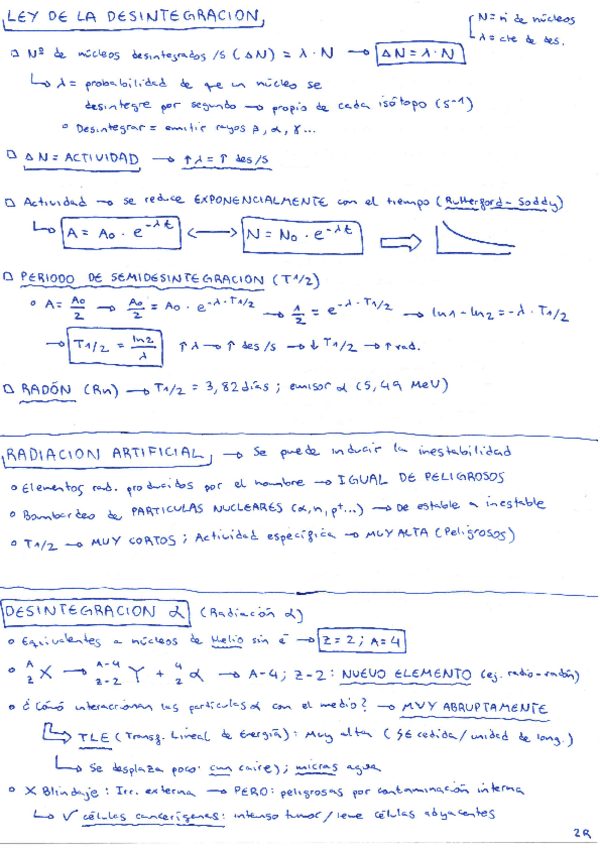 LEY DE LA DESINTEGRACION
N = nº de núcleos
λ = cte de des.
Nº de núcleos desintegrados /s (ΔN) = λ · N → ΔN = λ · N
λ = probabilidad de que un núcleo se
desintegre por segundo → propio de cada isótopo (s-1)
Desintegrar = emitir rayos β, α, γ...
ΔN = ACTIVIDAD → ↑λ = ↑ des/s
Actividad → se reduce EXPONENCIALMENTE con el tiempo (Rutherford - Soddy)
A = A0 · e^-λt ↔ N = N0 · e^-λt
PERIODO DE SEMIDESINTEGRACION (T1/2)
A = A0/2 → A0/2 = A0 · e^-λ·T1/2 → 1/2 = e^-λ·T1/2 → ln1 - ln2 = -λ · T1/2
→ T1/2 = ln2/λ ↑λ → ↑ des/s → ↓ T1/2 → ↑ rad.
RADÓN (Rn) → T1/2 = 3,82 días ; emisor α (5,49 MeV)
RADIACION ARTIFICIAL → Se puede inducir la inestabilidad
Elementos rad. producidos por el hombre → IGUAL DE PELIGROSOS
Bombardeo de PARTICULAS NUCLEARES (α, n, p+...) → De estable a inestable
T1/2 → MUY CORTOS ; Actividad específica → MUY ALTA (Peligrosos)
DESINTEGRACION α (Radiación α)
Equivalentes a núcleos de Helio sin e- → Z = 2 ; A = 4
A Z X → A-4 Z-2 Y + 4 2 α → A-4 ; Z-2 : NUEVO ELEMENTO (ej. radio - radón)
¿Cómo interaccionan las partículas α con el medio? → MUY ABRUPTAMENTE
TLE (Transf. Lineal de Energía) : Muy alta (SE cedida / unidad de long.)
Se desplaza poco: cm (aire) ; micras agua
X Blindaje : Irr. externa → PERO : peligrosas por contaminación interna
✓ células cancerígenas : intenso tumor / leve células adyacentes
2R